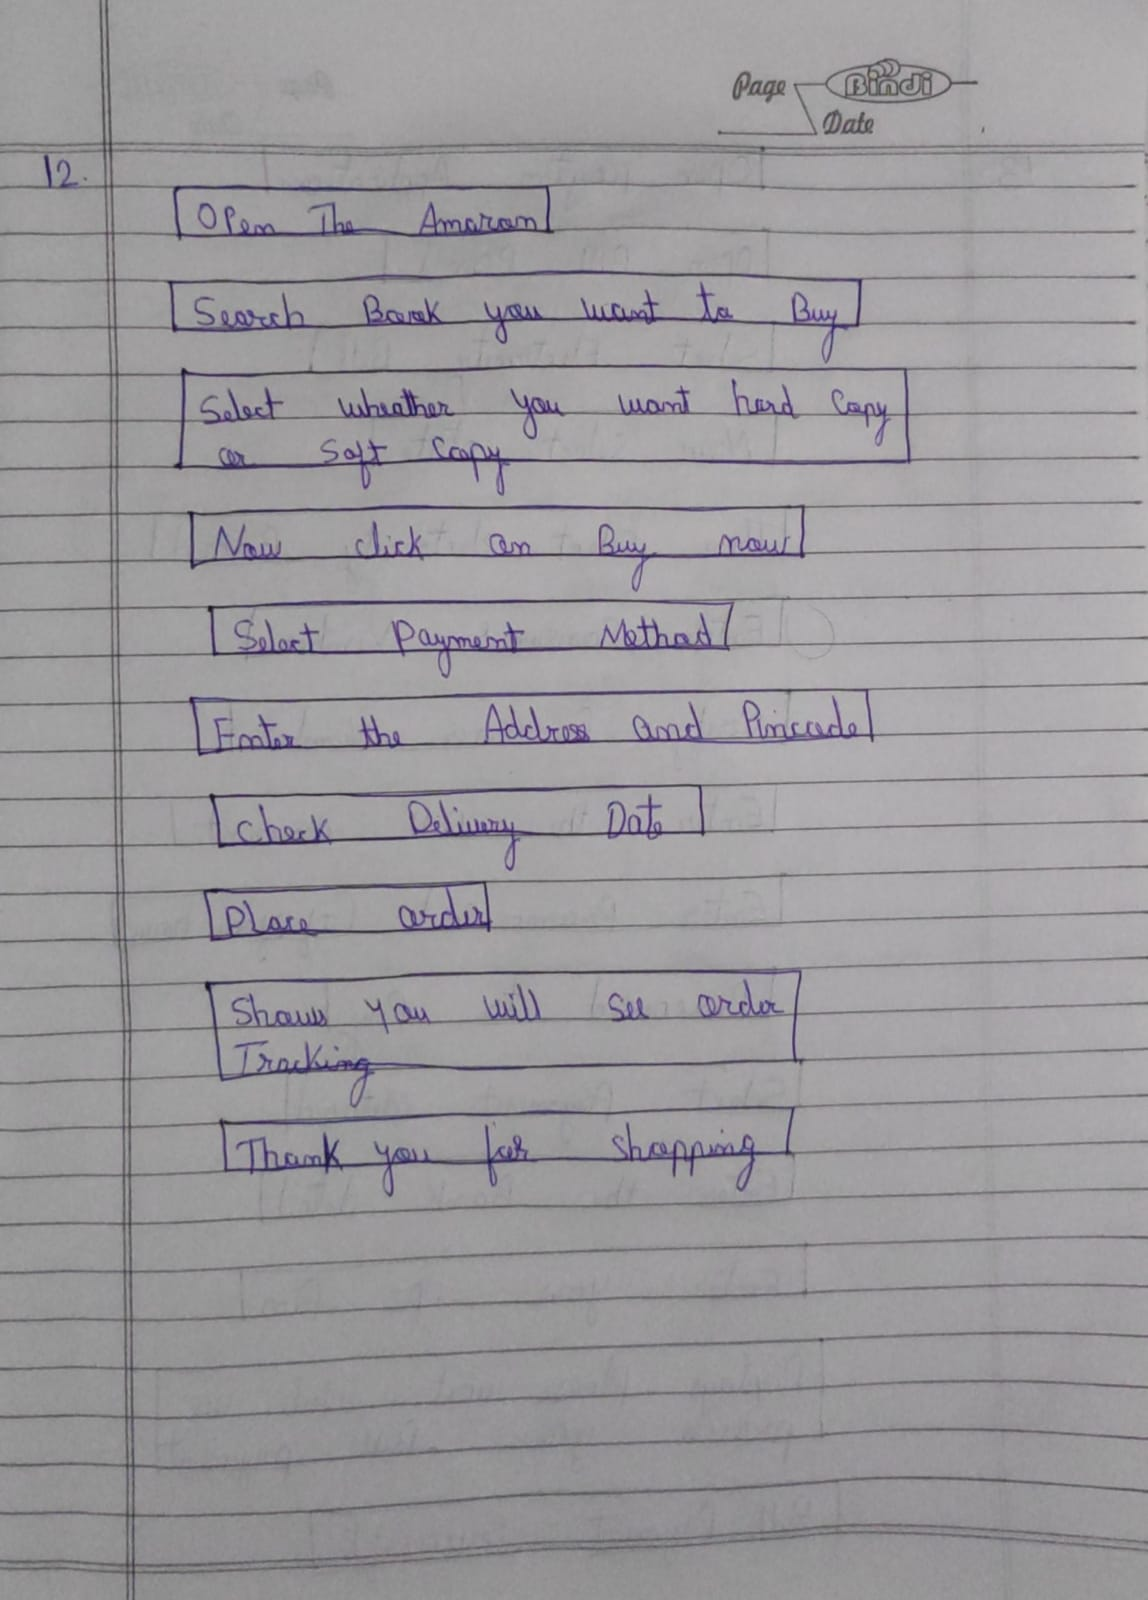 Page Bindi
Date
12.
Open The Amazon
Search Book you want to Buy
Select wheather you want hard copy
or Soft Copy
Now click on Buy now
Select Payment Method
Enter the Address and Pincode
Check Delivery Date
Place order
Shows you will see order
Tracking
Thank you for shopping